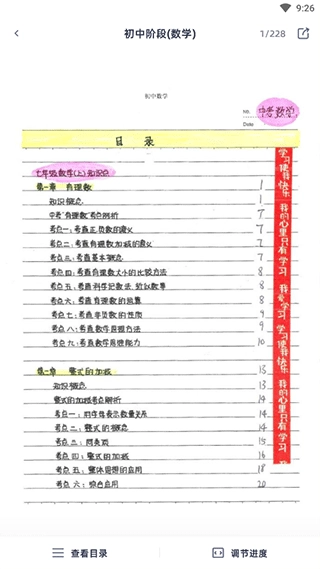 9:26
初中阶段(数学)
1/228
初中数学
No.
中考数学
Date
目 录
七年级数学(上)知识点
第一章 有理数 1
知识概念 1
中考"有理数"考点辨析 7
考点一：考查正负数的意义 7
考点二：考查有理数加减的意义 7
考点三：考查基本概念 7
考点四：考查有理数大小的比较方法 8
考点五：考查科学记数法、近似数等 8
考点六：考查有理数的运算 8
考点七：考查非负数的性质
考点八：考查数学思想方法 9
考点九：考查数学思维能力 10
第二章 整式的加减 13
知识概念 13
整式的加减考点解析 14
考点一：用字母表示数量关系 14
考点二：整式的概念 14
考点三：同类项 15
考点四：整式的加减 16
考点五：整体思想的应用 18
考点六：综合应用 20
学习使我快乐 我的心里只有学习 我爱学习 学习使我快乐 我的心里只有学习
查看目录
调节进度